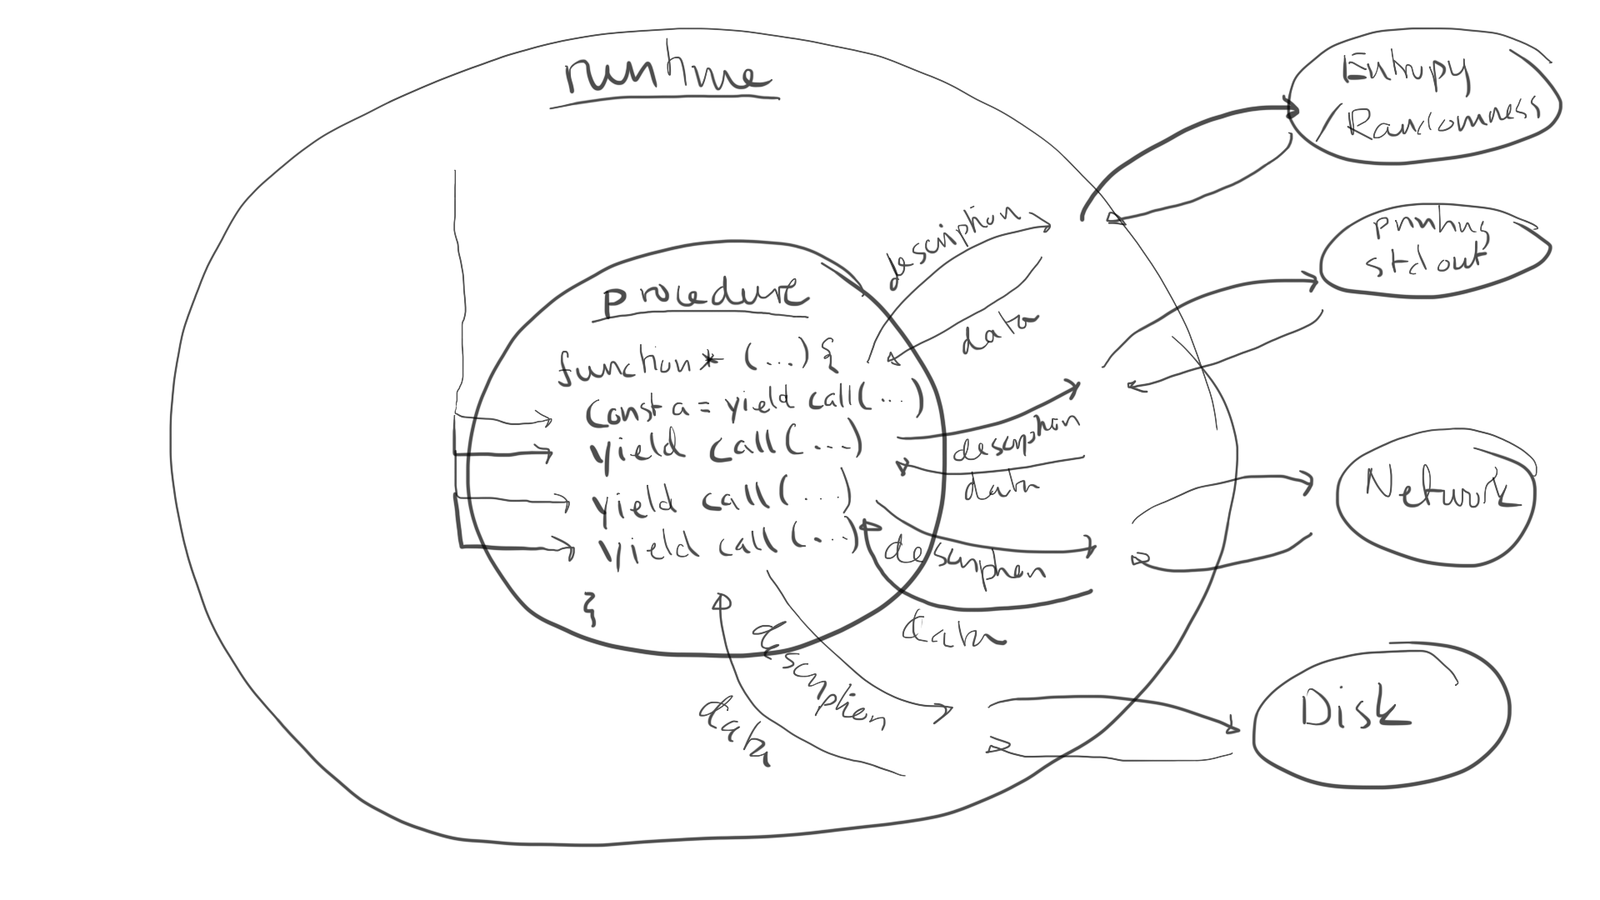 runtime
Entropy
/Randomness
printing
stdout
description
data
procedure
function* (...) {
const a = yield call(...)
yield call (...)
yield call (...)
yield call (...)
}
description
data
description
data
description
data
Network
Disk